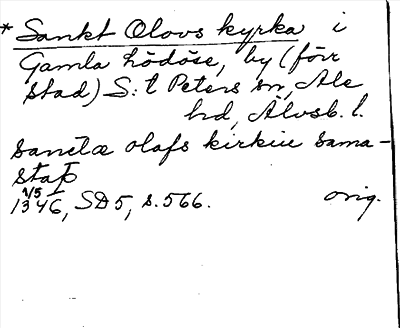 * Sankt Olovs kyrka i
Gamla Lödöse, by (förr
stad) S:t Peters sn, Ale
hd, Älvsb. l.
sanctæ olafs kirkiu sama-
staþ
1/5
1346, SD 5, s. 566. orig.